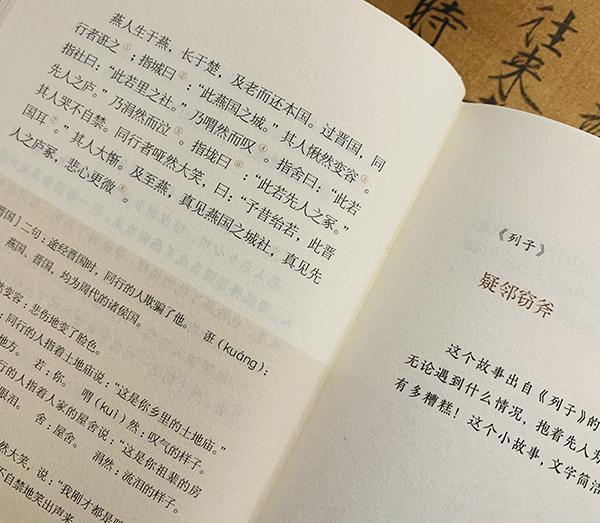 燕人生于燕，长于楚，及老而还本国。过晋国，同
行者诳之；指城曰：“此燕国之城。”其人愀然变容。
指社曰：“此若里之社。”乃喟然而叹。指舍曰：“此若
先人之庐。”乃涓然而泣。指垅曰：“此若先人之冢。”
其人哭不自禁。同行者哑然大笑，曰：“予昔绐若，此晋
国耳。”其人大惭。及至燕，真见燕国之城社，真见先
人之庐冢，悲心更微。
晋国］二句：途经晋国时，同行的人欺骗了他。 诳（kuáng）：
燕国、晋国，均为周代的诸侯国。
变容：悲伤地变了脸色。
同行的人指着土地庙说：“这是你乡里的土地庙。”
地方。 若：你。 喟（kuì）然：叹气的样子。
同行的人指着人家的屋舍说：“这是你祖辈的房
眼泪。 舍：屋舍。 涓然：流泪的样子。
然大笑，说：“我刚才都是
不自禁地笑出声来
《列子》
疑邻窃斧
这个故事出自《列子》的
无论遇到什么情况，抱着先人为
有多糟糕！这个小故事，文字简洁
往来
時